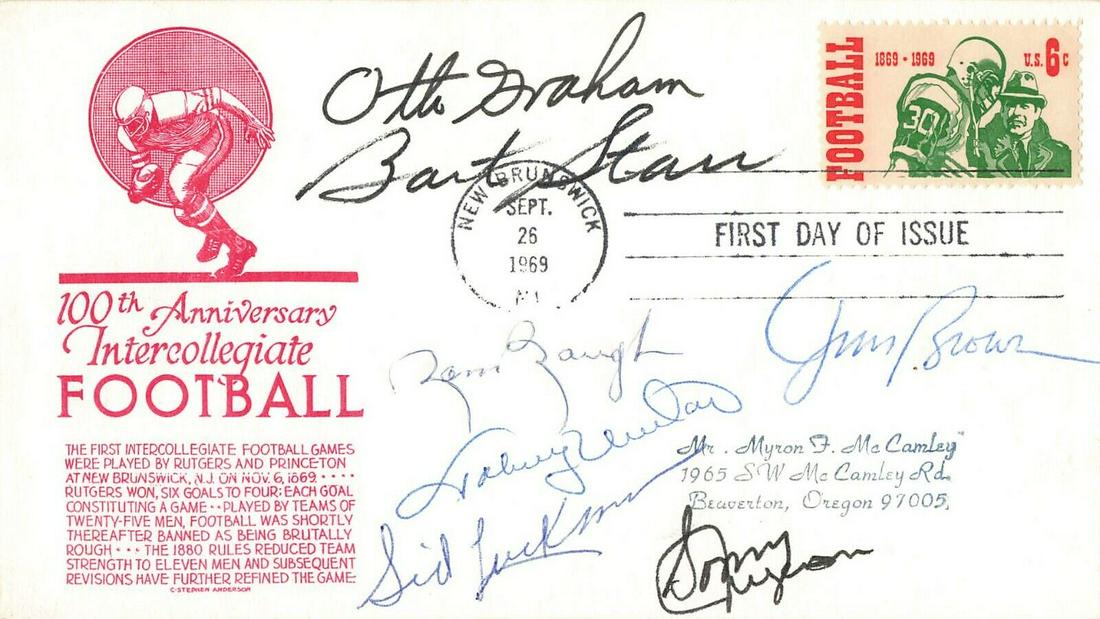 Otto Graham
Bart Starr
FOOTBALL
1869 • 1969
U.S. 6c
30
NEW BRUNSWICK
SEPT.
26
1969
FIRST DAY OF ISSUE
100th Anniversary
Intercollegiate
FOOTBALL
THE FIRST INTERCOLLEGIATE FOOTBALL GAMES
WERE PLAYED BY RUTGERS AND PRINCETON
AT NEW BRUNSWICK, N.J. ON NOV. 6, 1869 • • • •
RUTGERS WON, SIX GOALS TO FOUR; EACH GOAL
CONSTITUTING A GAME • • PLAYED BY TEAMS OF
TWENTY-FIVE MEN, FOOTBALL WAS SHORTLY
THEREAFTER BANNED AS BEING BRUTALLY
ROUGH • • • THE 1880 RULES REDUCED TEAM
STRENGTH TO ELEVEN MEN AND SUBSEQUENT
REVISIONS HAVE FURTHER REFINED THE GAME.
C•STEPHEN ANDERSON
Sam Baugh
Jim Brown
Johnny Unitas
Sid Luckman
Mr. Myron F. Mc Camley
1965 S W Mc Camley Rd.
Beaverton, Oregon 97005,
Sonny